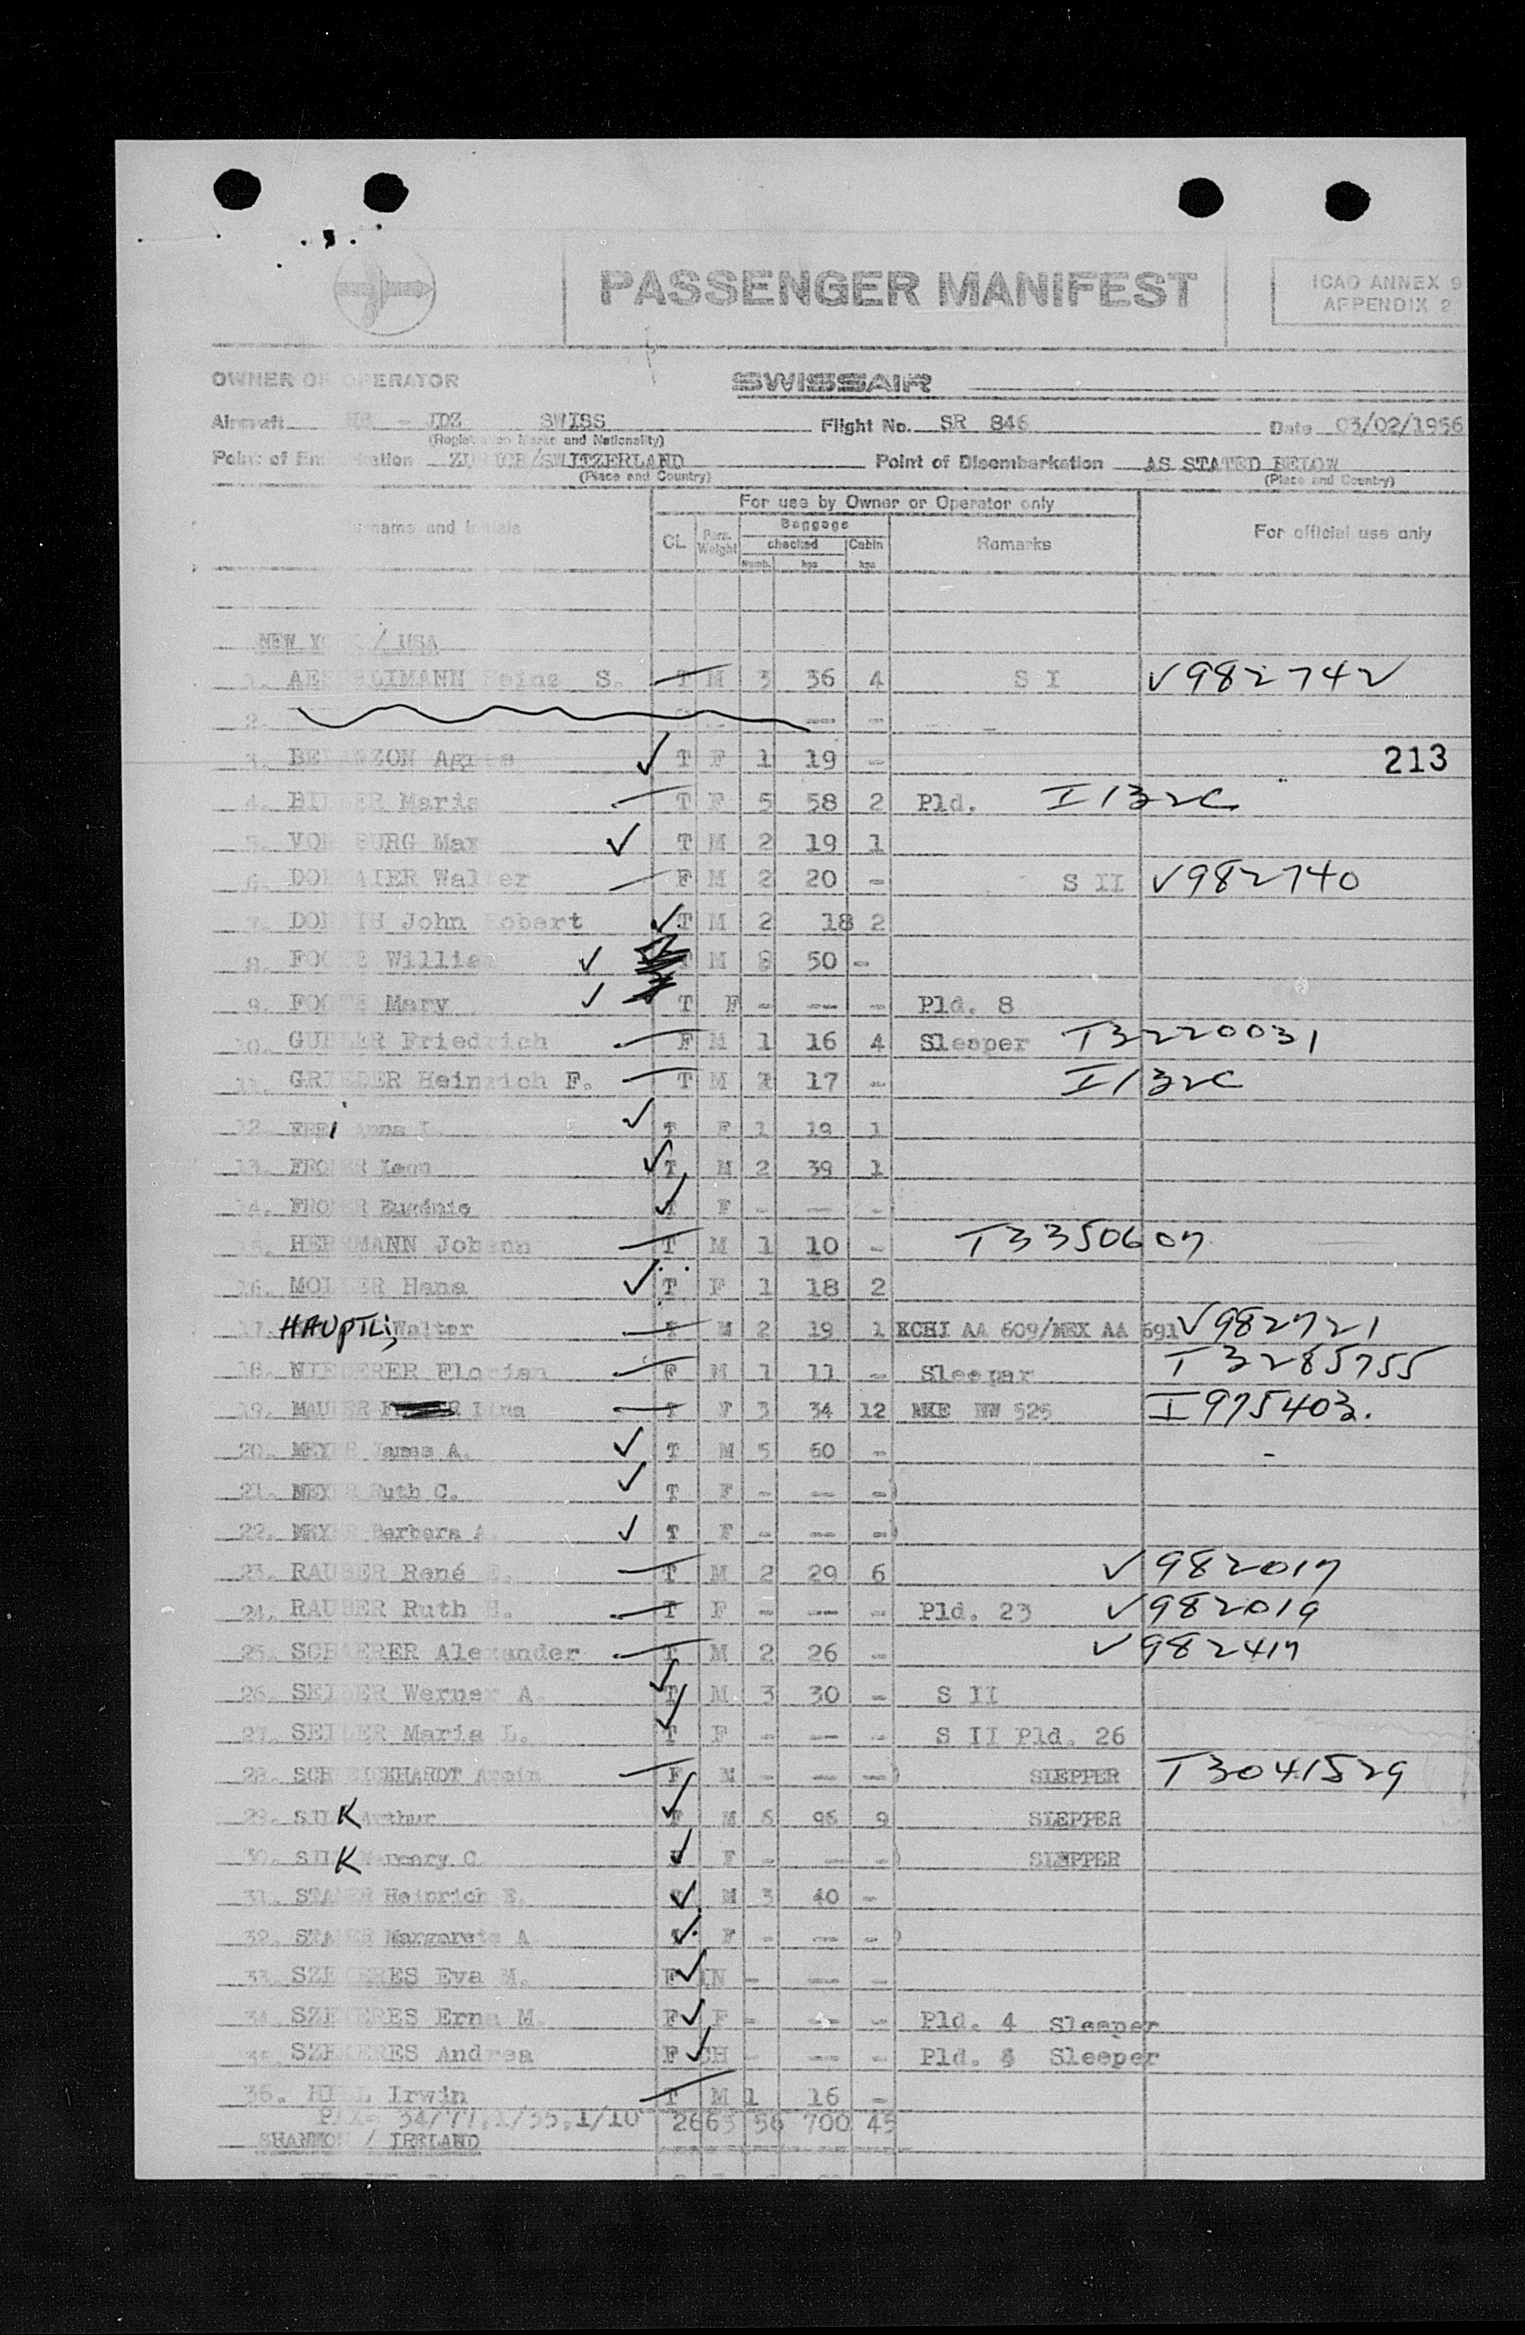 PASSENGER MANIFEST
ICAO ANNEX 9
APPENDIX 2
OWNER OR OPERATOR SWISSAIR
Aircraft HB - JDZ SWISS Flight No. SR 846 Date 03/02/1956
(Registration Marks and Nationality)
Point of Embarkation ZURICH/SWITZERLAND Point of Disembarkation AS STATED BELOW
(Place and Country) (Place and Country)
For use by Owner or Operator only
Surname and Initials CL Pers. Weight Baggage checked Cabin Remarks For official use only
Numb. kgs kgs
NEW YORK / USA
1. Heinz S. T M 3 36 4 S I V982742
2. — -
3. Agnes T F 1 19 -
213
4. Maria T F 5 58 2 Pld. I132C
5. Max T M 2 19 1
6. Walter F M 2 20 - S II V982740
7. John Robert T M 2 18 2
8. FOOTE William T M 8 50 -
9. FOOTE Mary T F - — - Pld. 8
10. Friedrich F M 1 16 4 Sleeper T3220031
11. GRIEDER Heinrich F. T M 1 17 - I132C
12. Anna T F 1 19 1
13. FROMER Leon T M 2 39 1
14. FROMER Eugénie T F - — -
15. HERRMANN Johann T M 1 10 - T3350607
16. Hana T F 1 18 2
17. HAUPTLi, Walter T M 2 19 1 KCHI AA 609/MEX AA 691 V982721
18. NIEDERER Florian F M 1 11 - Sleeper T3285755
19. MAURER Lina T F 3 34 12 MKE NW 525 I975403.
20. MEYER James A. T M 5 60 -
21. MEYER Ruth C. T F - — -)
22. MEYER Barbara A. T F - — -)
23. RAUBER René E. T M 2 29 6 V982017
24. RAUBER Ruth H. T F - — - Pld. 23 V982019
25. SCHAERER Alexander T M 2 26 - V982417
26. SEILER Werner A. T M 3 30 - S II
27. SEILER Maria L. T F - — - S II Pld. 26
28. SCHWEICKHARDT Armin F M - — —) SLEPPER T3041529
29. Arthur F M 6 96 9 SLEPPER
30. C. F F - — -) SLEPPER
31. Heinrich E. T M 3 40 -
32. Margarete A. T F - — -)
33. SZEKERES Eva M. F IN - — -
34. SZEKERES Erna M. F F - — - Pld. 4 Sleeper
35. SZEKERES Andrea F CH - — - Pld. 4 Sleeper
36. HILL Irwin T M 1 16 -
PAX= 34/77,1/35,1/10 2663 56 700 45
SHANNON / IRELAND